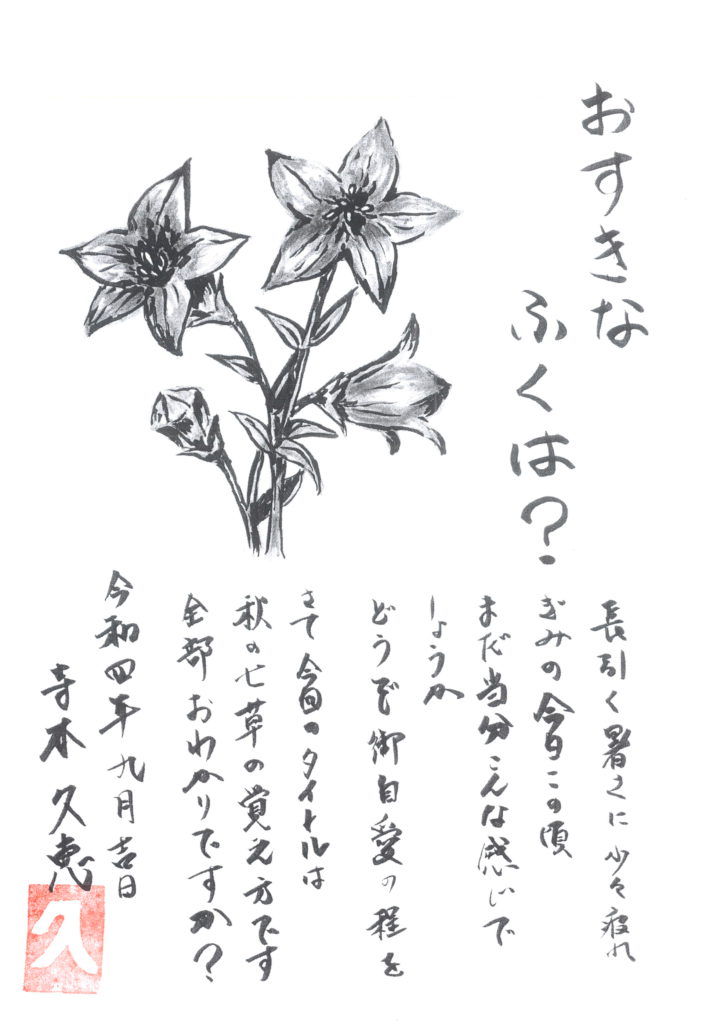 おすきな
ふくは?
長引く暑さに少々疲れ
ぎみの今日この頃
まだ当分こんな感じで
しょうか
どうぞ御自愛の程を
さて今回のタイトルは
秋の七草の覚え方です
全部おわかりですか?
令和四年九月吉日
寺本久恵
久